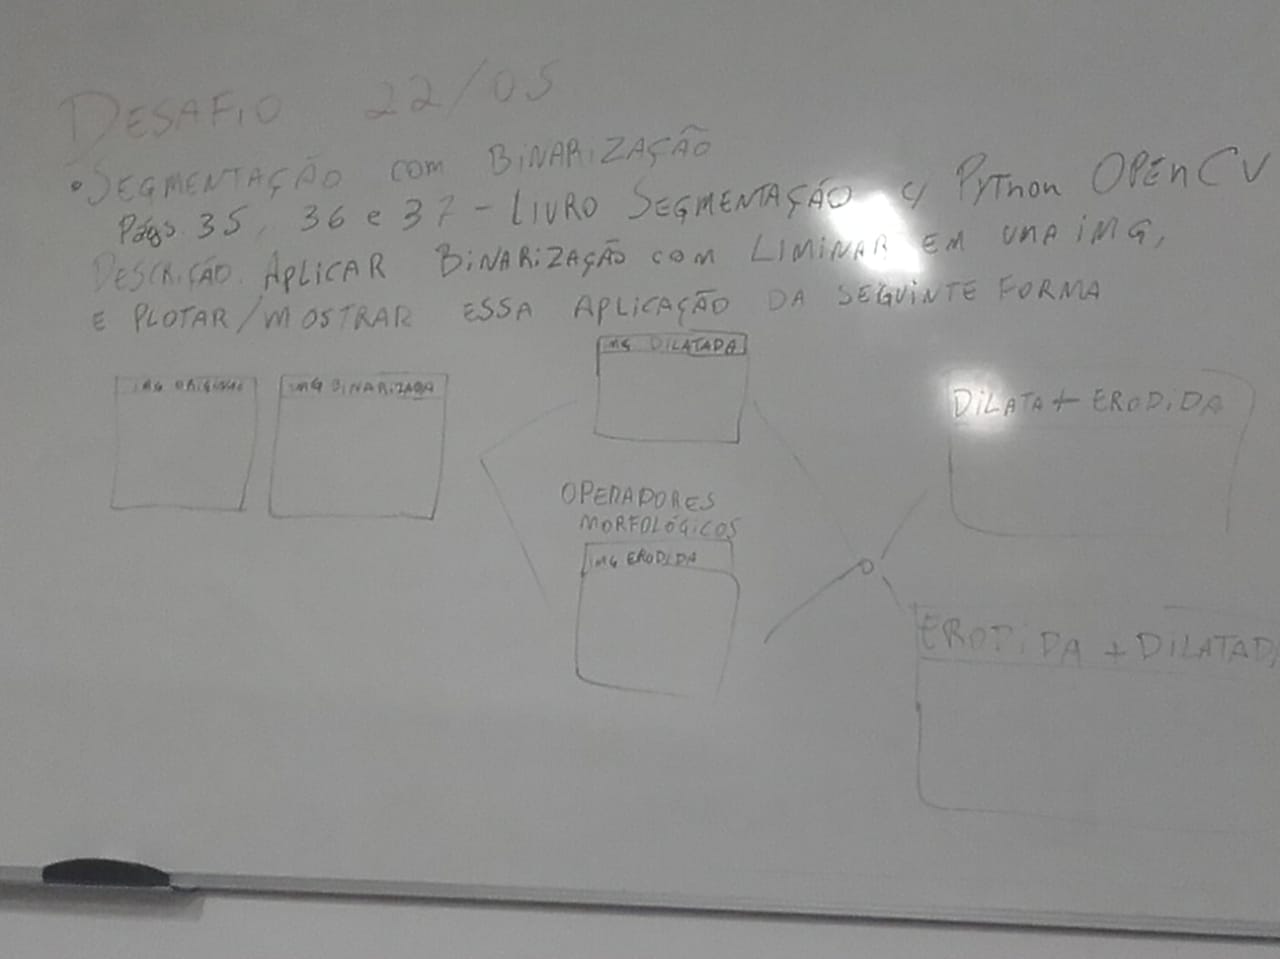 DESAFIO 22/05
• SEGMENTAÇÃO com BINARIZAÇÃO
Págs. 35, 36 e 37 - LIVRO SEGMENTAÇÃO c/ PyThon OPEnCV
DESCRIÇÃO. APLICAR BINARIZAÇÃO com LIMINAR EM UMA IMG,
E PLOTAR/MOSTRAR ESSA APLICAÇÃO DA SEGUINTE FORMA
IMG ORIGINAL
IMG BINARIZADA
IMG DILATADA
OPERADORES
MORFOLÓGICOS
IMG ERODIDA
DILATA + ERODIDA
ERODIDA + DILATAD